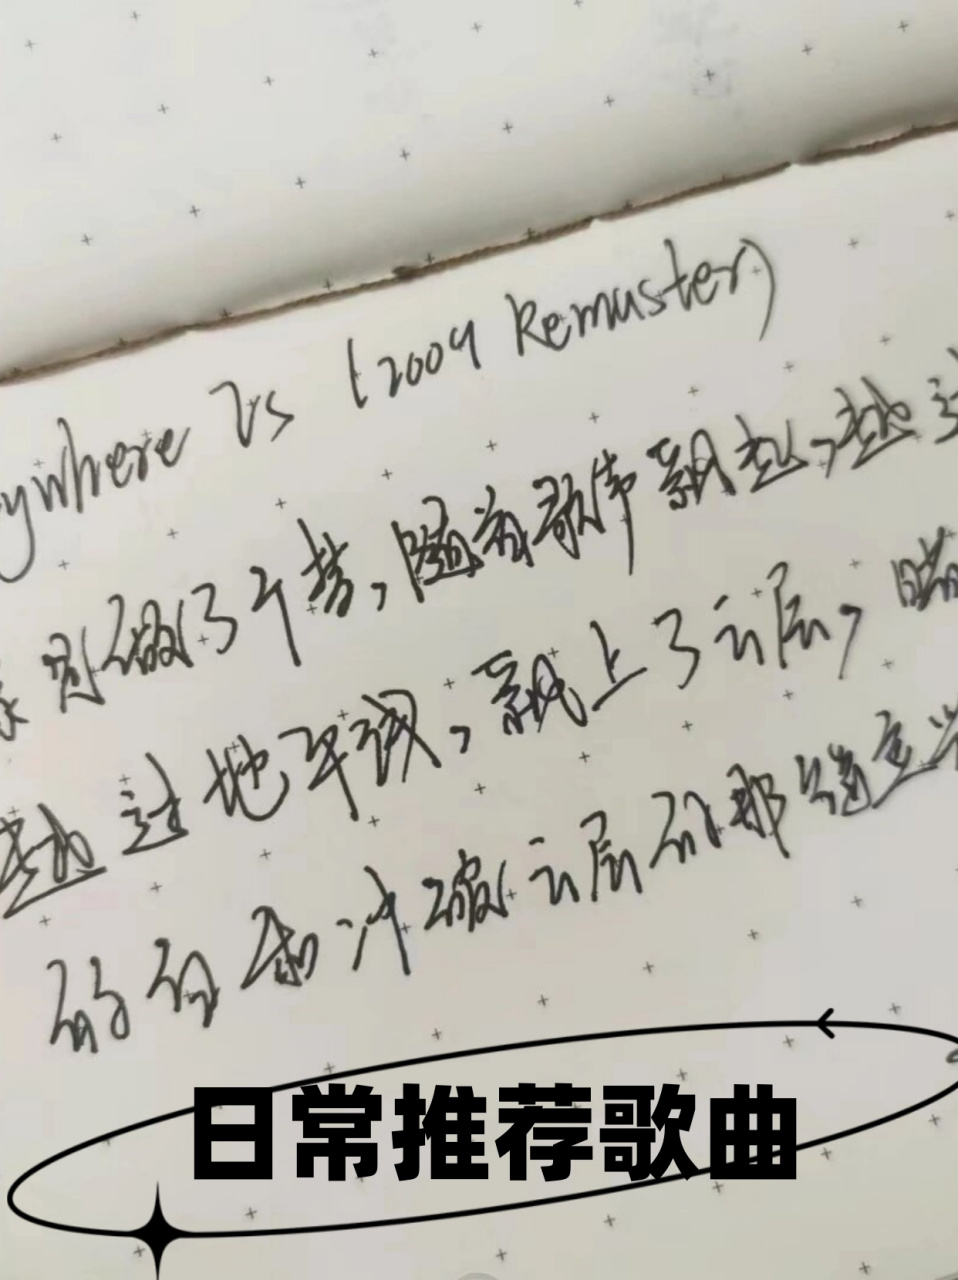 ywhere Is (2009 Remaster)
像是做了个梦,随着歌声飘起,越过
越过地平线,飘上了云层,
的句 和冲破云层的那
日常推荐歌曲